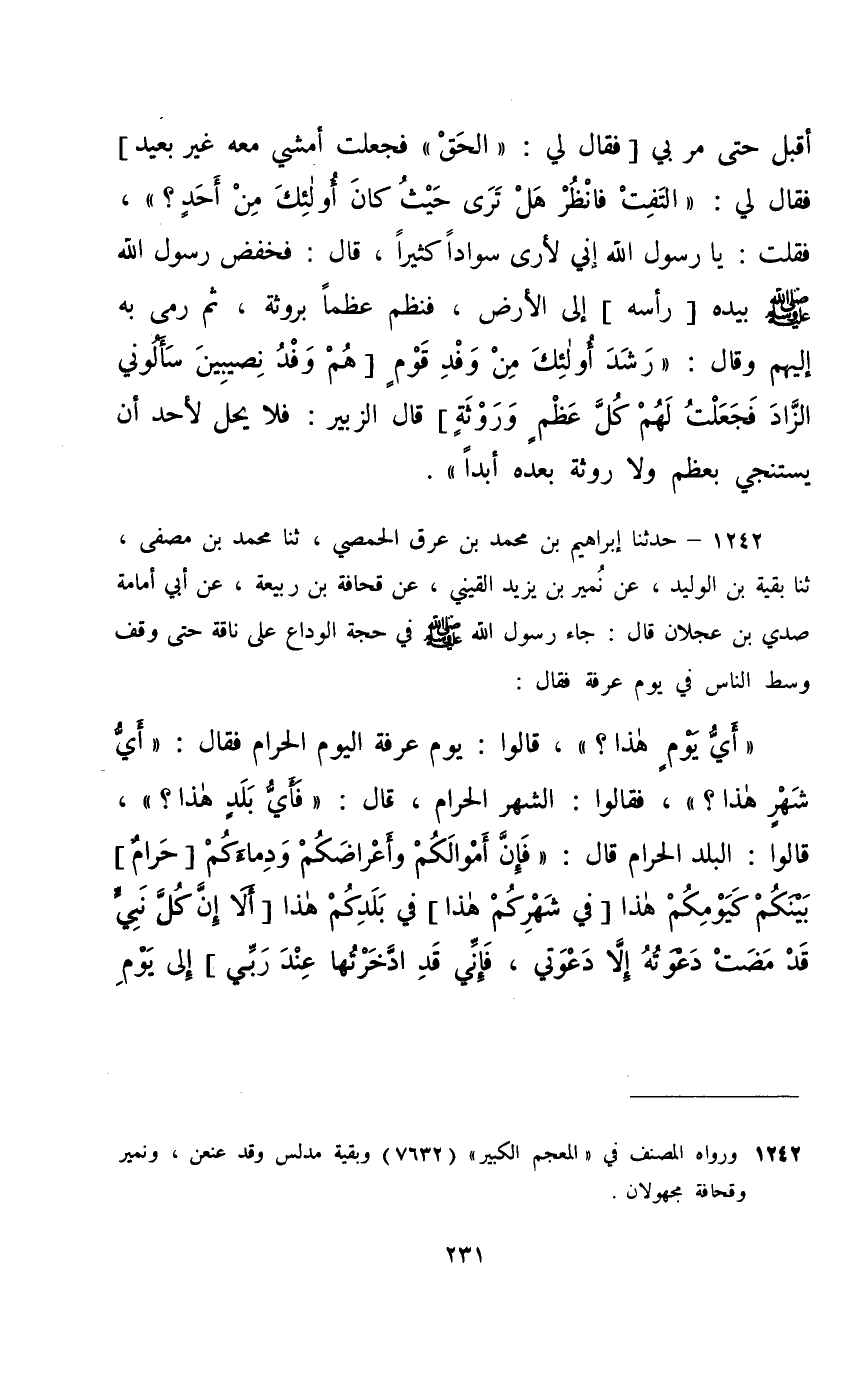 أقبل حتى مر بي [ فقال لي : « الحَقْ » فجعلت أمشي معه غير بعيد ]
فقال لي : « التَفِتْ فانْظُرْ هَلْ تَرَى حَيْثُ كانَ أُولٰئِكَ مِنْ أَحَدٍ ؟ » ،
فقلت : يا رسول الله إني لأرى سواداً كثيراً ، قال : فخفض رسول الله
ﷺ بيده [ رأسه ] إلى الأرض ، فنظم عظماً بروثة ، ثم رمى به
إليهم وقال : « رَشَدَ أُولٰئِكَ مِنْ وَفْدِ قَوْمٍ [ هُمْ وَفْدُ نِصيبِينَ سَأَلُوني
الزَّادَ فَجَعَلْتُ لَهُمْ كُلَّ عَظْمٍ وَرَوْثَةٍ ] قال الزبير : فلا يحل لأحد أن
يستنجي بعظم ولا روثة بعده أبداً » .
١٢٤٢ – حدثنا إبراهيم بن محمد بن عرق الحمصي ، ثنا محمد بن مصفى ،
ثنا بقية بن الوليد ، عن نُمير بن يزيد القيني ، عن قحافة بن ربيعة ، عن أبي أمامة
صدي بن عجلان قال : جاء رسول الله ﷺ في حجة الوداع على ناقة حتى وقف
وسط الناس في يوم عرفة فقال :
« أَيُّ يَوْمٍ هٰذا ؟ » ، قالوا : يوم عرفة اليوم الحرام فقال : « أَيُّ
شَهْرٍ هٰذا ؟ » ، فقالوا : الشهر الحرام ، قال : « فَأَيُّ بَلَدٍ هٰذا ؟ » ،
قالوا : البلد الحرام قال : « فَإِنَّ أَمْوالَكُمْ وأَعْراضَكُمْ وَدِماءَكُمْ [ حَرامٌ ]
بَيْنَكُمْ كَيَوْمِكُمْ هٰذا [ في شَهْرِكُمْ هٰذا ] في بَلَدِكُمْ هٰذا [ أَلَا إِنَّ كُلَّ نَبِيٍّ
قَدْ مَضَتْ دَعْوَتُهُ إِلَّا دَعْوَتي ، فَإِنِّي قَدِ ادَّخَرْتُها عِنْدَ رَبِّي ] إِلى يَوْمِ
١٢٤٢ ورواه المصنف في « المعجم الكبير » (٧٦٣٢) وبقية مدلس وقد عنعن ، ونمير
وقحافة مجهولان .
٢٣١